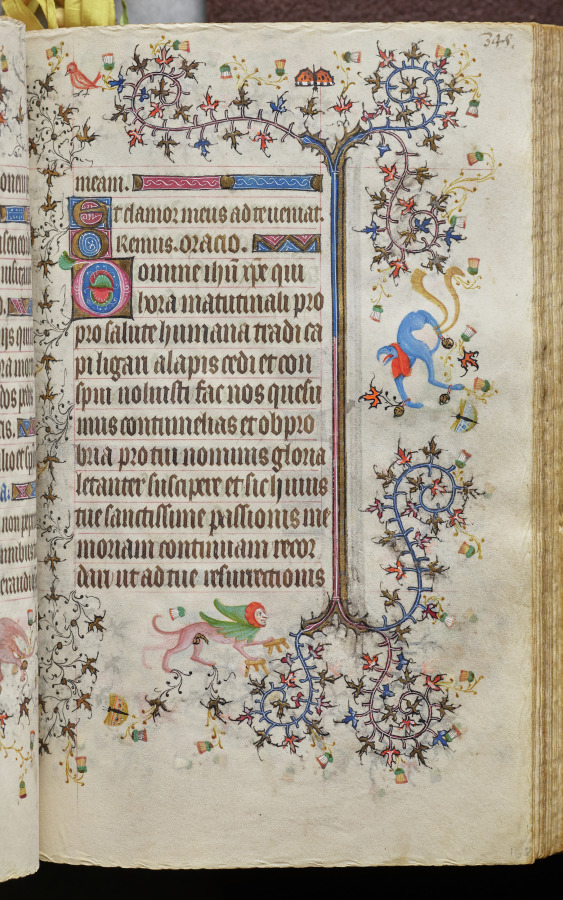 348.
meam.
Et clamor meus ad te ueniat.
Oremus. Oracio.
Domine ihū xp̄e qui
hora matutinali pro
pro salute humana tradi ca
pi ligari alapis cedi et con
spui uoluisti fac nos quesu
mus contumelias et obpro
bria pro tui nominis gloria
letanter suscipere et sic huius
tue sanctissime passionis me
moriam continuam recor
dari ut ad tue resurrectionis